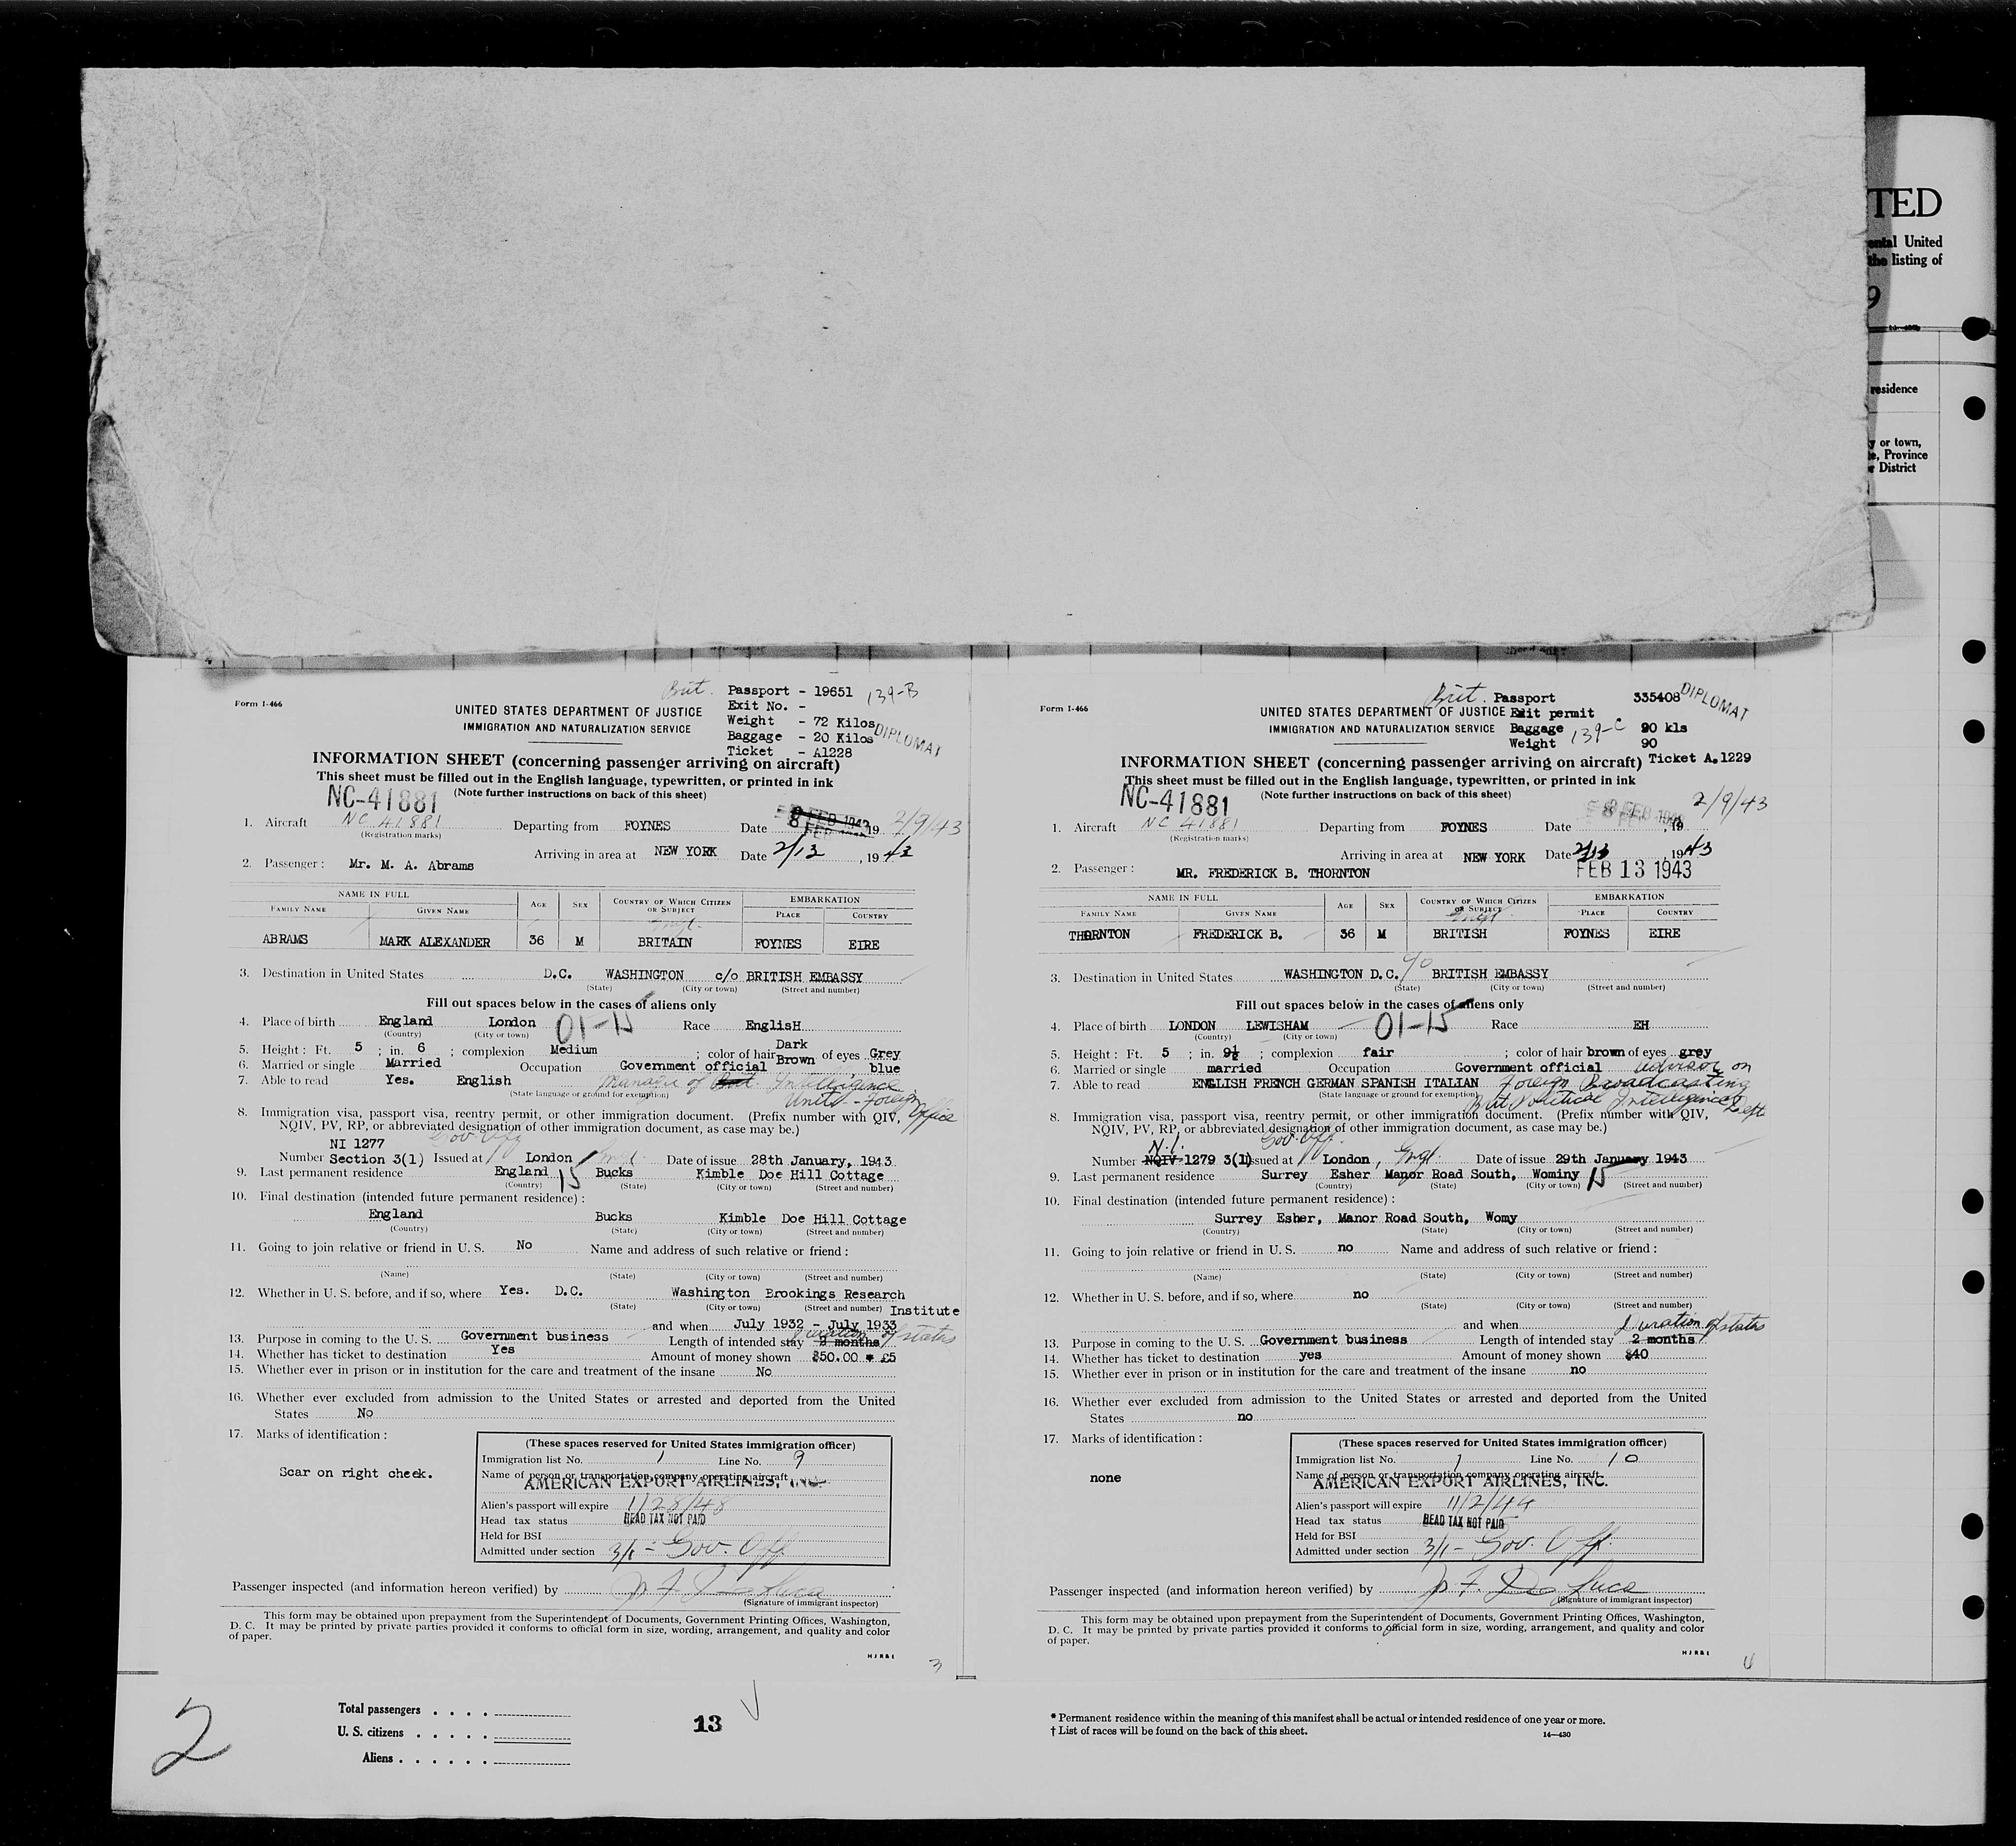 TED
ental United
the listing of
9
14—430
residence
y or town,
te, Province
r District
Form I-466
Brit. Passport - 19651 139-B
Exit No. -
Weight - 72 Kilos
Baggage - 20 Kilos
Ticket - A1228
DIPLOMAT
UNITED STATES DEPARTMENT OF JUSTICE
IMMIGRATION AND NATURALIZATION SERVICE
INFORMATION SHEET (concerning passenger arriving on aircraft)
This sheet must be filled out in the English language, typewritten, or printed in ink
NC-41881 (Note further instructions on back of this sheet)
1. Aircraft NC 41881 Departing from FOYNES Date 8 FEB 1943 19 2/9/43
(Registration marks)
Arriving in area at NEW YORK Date 2/13, 1943
2. Passenger: Mr. M. A. Abrams
NAME IN FULL AGE SEX COUNTRY OF WHICH CITIZEN OR SUBJECT EMBARKATION
FAMILY NAME GIVEN NAME PLACE COUNTRY
Engl.
ABRAMS MARK ALEXANDER 36 M BRITAIN FOYNES EIRE
3. Destination in United States D.C. WASHINGTON c/o BRITISH EMBASSY
(State) (City or town) (Street and number)
Fill out spaces below in the cases of aliens only
4. Place of birth England London 01-15 Race EnglisH
(Country) (City or town)
5. Height: Ft. 5; in. 6; complexion Medium; color of hair Dark Brown of eyes Grey blue
6. Married or single Married Occupation Government official
7. Able to read Yes. English Manager of Brit Intelligence
(State language or ground for exemption) Unit - Foreign Office
8. Immigration visa, passport visa, reentry permit, or other immigration document. (Prefix number with QIV,
NQIV, PV, RP, or abbreviated designation of other immigration document, as case may be.)
NI 1277 Gov. Off
Number Section 3(1) Issued at London Engl. Date of issue 28th January, 1943
9. Last permanent residence England 15 Bucks Kimble Doe Hill Cottage
(Country) (State) (City or town) (Street and number)
10. Final destination (intended future permanent residence):
England Bucks Kimble Doe Hill Cottage
(Country) (State) (City or town) (Street and number)
11. Going to join relative or friend in U. S. No Name and address of such relative or friend:
(Name) (State) (City or town) (Street and number)
12. Whether in U. S. before, and if so, where Yes. D.C. Washington Brookings Research
(State) (City or town) (Street and number) Institute
and when July 1932 - July 1933
duration of status
13. Purpose in coming to the U. S. Government business Length of intended stay 2 months
14. Whether has ticket to destination Yes Amount of money shown $50.00 * £5
15. Whether ever in prison or in institution for the care and treatment of the insane No
16. Whether ever excluded from admission to the United States or arrested and deported from the United
States No
17. Marks of identification:
Scar on right cheek.
(These spaces reserved for United States immigration officer)
Immigration list No. 1 Line No. 9
Name of person or transportation company operating aircraft
AMERICAN EXPORT AIRLINES, INC.
Alien's passport will expire 1/28/48
Head tax status HEAD TAX NOT PAID
Held for BSI
Admitted under section 3/1 - Gov. Off.
Passenger inspected (and information hereon verified) by
(Signature of immigrant inspector)
This form may be obtained upon prepayment from the Superintendent of Documents, Government Printing Offices, Washington,
D. C. It may be printed by private parties provided it conforms to official form in size, wording, arrangement, and quality and color
of paper.
HJR&I
3
Form I-466
Brit. Passport 335408
Exit permit
Baggage 139-C 90 kls
Weight 90
Ticket A.1229
DIPLOMAT
UNITED STATES DEPARTMENT OF JUSTICE
IMMIGRATION AND NATURALIZATION SERVICE
INFORMATION SHEET (concerning passenger arriving on aircraft)
This sheet must be filled out in the English language, typewritten, or printed in ink
NC-41881 (Note further instructions on back of this sheet) 2/9/43
1. Aircraft NC 41881 Departing from FOYNES Date 8 FEB 1943, 19
(Registration marks)
Arriving in area at NEW YORK Date 2/13, 1943
2. Passenger: MR. FREDERICK B. THORNTON FEB 13 1943
NAME IN FULL AGE SEX COUNTRY OF WHICH CITIZEN OR SUBJECT EMBARKATION
FAMILY NAME GIVEN NAME PLACE COUNTRY
Engl.
THORNTON FREDERICK B. 36 M BRITISH FOYNES EIRE
3. Destination in United States WASHINGTON D.C. c/o BRITISH EMBASSY
(State) (City or town) (Street and number)
Fill out spaces below in the cases of aliens only
4. Place of birth LONDON LEWISHAM 01-15 Race EH
(Country) (City or town)
5. Height: Ft. 5; in. 9½; complexion fair; color of hair brown of eyes grey
6. Married or single married Occupation Government official advisor on
7. Able to read ENGLISH FRENCH GERMAN SPANISH ITALIAN Foreign Broadcasting
(State language or ground for exemption) Brit Political Intelligence Dept
8. Immigration visa, passport visa, reentry permit, or other immigration document. (Prefix number with QIV,
NQIV, PV, RP, or abbreviated designation of other immigration document, as case may be.)
N.I. Gov. Off.
Number NQIV 1279 3(1) Issued at London, Engl. Date of issue 29th January 1943
9. Last permanent residence Surrey Esher Manor Road South, Wominy 15
(Country) (State) (City or town) (Street and number)
10. Final destination (intended future permanent residence):
Surrey Esher, Manor Road South, Womy
(Country) (State) (City or town) (Street and number)
11. Going to join relative or friend in U. S. no Name and address of such relative or friend:
(Name) (State) (City or town) (Street and number)
12. Whether in U. S. before, and if so, where no
(State) (City or town) (Street and number)
and when duration of status
13. Purpose in coming to the U. S. Government business Length of intended stay 2 months
14. Whether has ticket to destination yes Amount of money shown $40
15. Whether ever in prison or in institution for the care and treatment of the insane no
16. Whether ever excluded from admission to the United States or arrested and deported from the United
States no
17. Marks of identification:
none
(These spaces reserved for United States immigration officer)
Immigration list No. 1 Line No. 10
Name of person or transportation company operating aircraft
AMERICAN EXPORT AIRLINES, INC.
Alien's passport will expire 11/2/44
Head tax status HEAD TAX NOT PAID
Held for BSI
Admitted under section 3/1 - Gov. Off.
Passenger inspected (and information hereon verified) by
(Signature of immigrant inspector)
This form may be obtained upon prepayment from the Superintendent of Documents, Government Printing Offices, Washington,
D. C. It may be printed by private parties provided it conforms to official form in size, wording, arrangement, and quality and color
of paper.
HJR&I
4
2
Total passengers
U. S. citizens
Aliens
13
* Permanent residence within the meaning of this manifest shall be actual or intended residence of one year or more.
† List of races will be found on the back of this sheet.
14—430